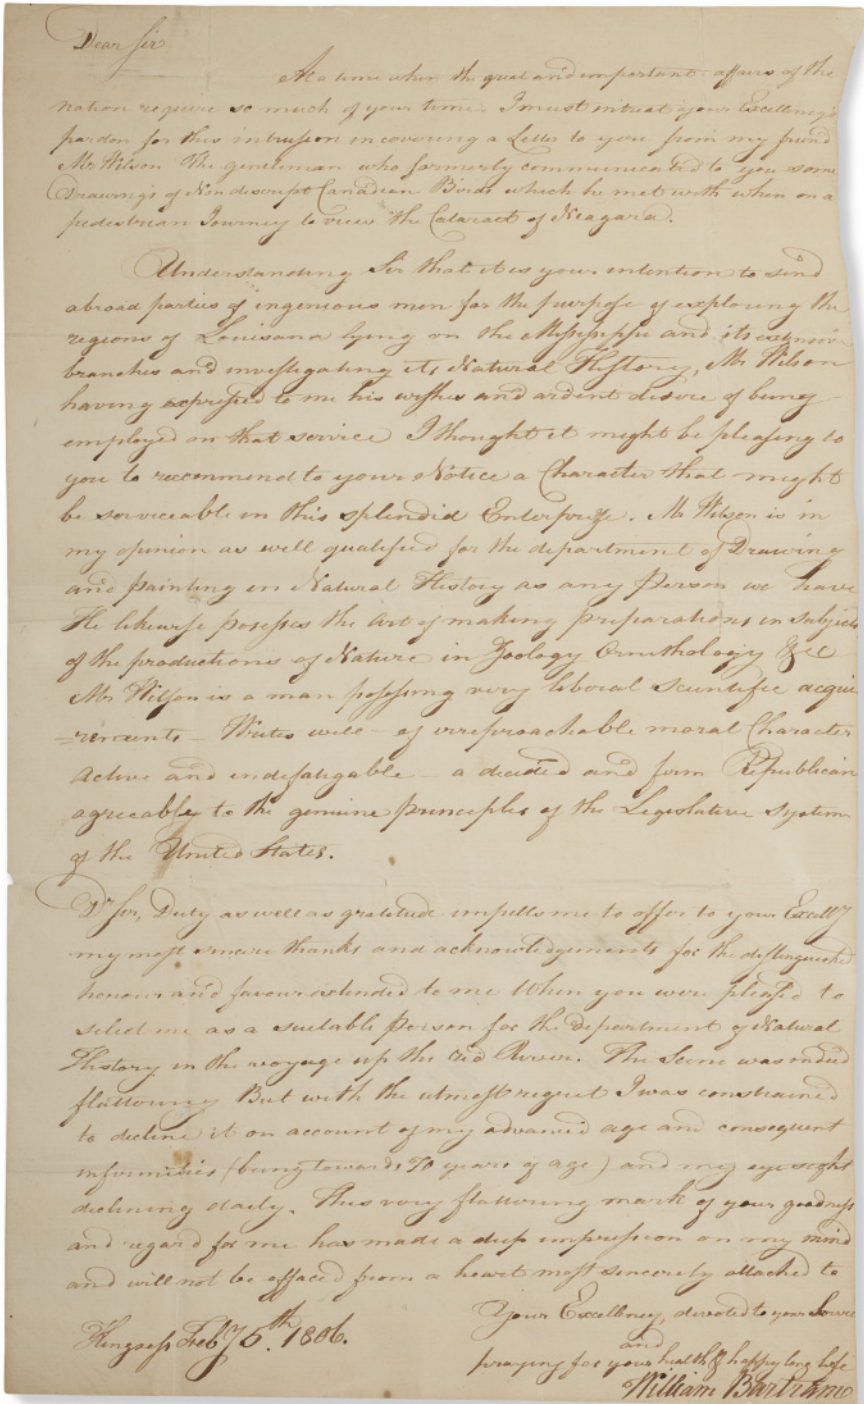 Dear Sir
At a time when the great and important affairs of the
nation require so much of your time. I must intreat your Excellency's
pardon for this intrusion in covering a Letter to you from my friend
Mr Wilson The gentleman who formerly communicated to you some
Drawings of Non discript Canadian Birds which he met with when on a
pedestrian Journey to view the Cataract of Niagara.
Understanding Sir that it is your intention to send
abroad parties of ingenious men for the purpose of exploring the
regions of Louisana lying on the Mississippi and its extensive
branches and investigating its Natural History, Mr Wilson
having expressed to me his wishes and ardent desire of being
employed on that service I thought it might be pleasing to
you to recommend to your Notice a Character that might
be serviceable in this splendid Enterprize. Mr Wilson is in
my opinion as well qualified for the department of Drawing
and painting in Natural History as any Person we have
He likewise posesses the Art of making preparations in subjects
of the productions of Nature in Zoology Ornithology &c
Mr Wilson is a man possessing very liboral Scientific acqui
=rements – Writes well – of irreproachable moral Character
Active and indefatigable – a decided and firm Republican
agreeable to the genuine principles of the Legislative System
of the United States.
Dr Sir, Duty as well as gratitude impells me to offer to your Excelly
my most sincere thanks and acknowledgements for the distinguished
honour and favour extended to me When you were pleased to
select me as a suitable person for the Department of Natural
History in the voyage up the red River. The Scene was indeed
flattouring But with the utmost regret I was constrained
to decline it on account of my advanced age and consequent
infirmities (being towards 70 years of age) and my eye sight
declining daily. This very flattouring mark of your goodness
and regard for me has made a deep impression on my mind
and will not be effaced from a heart most sincerely attached to
Your Excellency, devoted to your Service
and
praying for your health & happy long life
Kingsess Feby 5th. 1806.
William Bartram